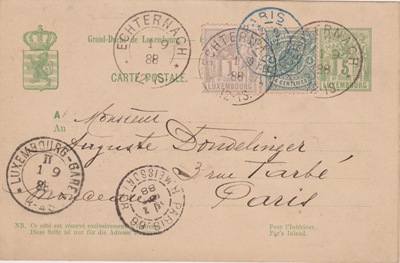 Grand-Duché de Luxembourg
CARTE POSTALE.
ECHTERNACH
1 9
88
ECHTERNACH
88
12-1S.
PARIS
ECHTERNACH
88
12-1S.
LUXEMBOURG
4 CENTIMES
5
LUXEMBOURG
A
An
Monsieur
Auguste Dondelinger
3 rue Tarbé
Monceau
Paris
LUXEMBOURG-GARE
II
1 9
PARIS 66
R. MEISSONIER
88
NB. Ce côté est réservé exclusivement
Diese Seite ist nur für die Adresse
Pour l'intérieur.
Für's Inland.